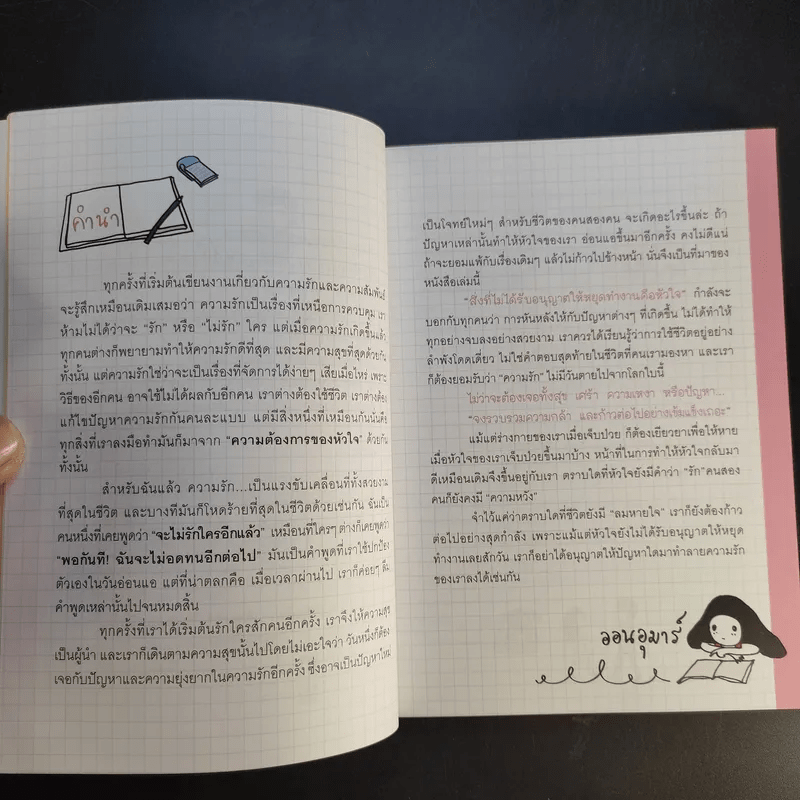 คำนำ
ทุกครั้งที่เริ่มต้นเขียนงานเกี่ยวกับความรักและความสัมพันธ์
จะรู้สึกเหมือนเดิมเสมอว่า ความรักเป็นเรื่องที่เหนือการควบคุม เรา
ห้ามไม่ได้ว่าจะ "รัก" หรือ "ไม่รัก" ใคร แต่เมื่อความรักเกิดขึ้นแล้ว
ทุกคนต่างก็พยายามทำให้ความรักดีที่สุด และมีความสุขที่สุดด้วยกัน
ทั้งนั้น แต่ความรักใช่ว่าจะเป็นเรื่องที่จัดการได้ง่ายๆ เสียเมื่อไหร่ เพราะ
วิธีของอีกคน อาจใช้ไม่ได้ผลกับอีกคน เราต่างต้องใช้ชีวิต เราต่างต้อง
แก้ไขปัญหาความรักกันคนละแบบ แต่มีสิ่งหนึ่งที่เหมือนกันนั่นคือ
ทุกสิ่งที่เราลงมือทำมันก็มาจาก "ความต้องการของหัวใจ" ด้วยกัน
ทั้งนั้น
สำหรับฉันแล้ว ความรัก...เป็นแรงขับเคลื่อนที่ทั้งสวยงาม
ที่สุดในชีวิต และบางทีมันก็โหดร้ายที่สุดในชีวิตด้วยเช่นกัน ฉันเป็น
คนหนึ่งที่เคยพูดว่า "จะไม่รักใครอีกแล้ว" เหมือนที่ใครๆ ต่างก็เคยพูดว่า
"พอกันที! ฉันจะไม่อดทนอีกต่อไป" มันเป็นคำพูดที่เราใช้ปกป้อง
ตัวเองในวันอ่อนแอ แต่ที่น่าตลกคือ เมื่อเวลาผ่านไป เราก็ค่อยๆ ลืม
คำพูดเหล่านั้นไปจนหมดสิ้น
ทุกครั้งที่เราได้เริ่มต้นรักใครสักคนอีกครั้ง เราจึงให้ความสุข
เป็นผู้นำ และเราก็เดินตามความสุขนั้นไปโดยไม่เอะใจว่า วันหนึ่งก็ต้อง
เจอกับปัญหาและความยุ่งยากในความรักอีกครั้ง ซึ่งอาจเป็นปัญหาใหม่
เป็นโจทย์ใหม่ๆ สำหรับชีวิตของคนสองคน จะเกิดอะไรขึ้นล่ะ ถ้า
ปัญหาเหล่านั้นทำให้หัวใจของเรา อ่อนแอขึ้นมาอีกครั้ง คงไม่ดีแน่
ถ้าจะยอมแพ้กับเรื่องเดิมๆ แล้วไม่ก้าวไปข้างหน้า นั่นจึงเป็นที่มาของ
หนังสือเล่มนี้
"สิ่งที่ไม่ได้รับอนุญาตให้หยุดทำงานคือหัวใจ" กำลังจะ
บอกกับทุกคนว่า การหันหลังให้กับปัญหาต่างๆ ที่เกิดขึ้น ไม่ได้ทำให้
ทุกอย่างจบลงอย่างสวยงาม เราควรได้เรียนรู้ว่าการใช้ชีวิตอยู่อย่าง
ลำพังโดดเดี่ยว ไม่ใช่คำตอบสุดท้ายในชีวิตที่คนเรามองหา และเรา
ก็ต้องยอมรับว่า "ความรัก" ไม่มีวันตายไปจากโลกใบนี้
ไม่ว่าจะต้องเจอทั้งสุข เศร้า ความเหงา หรือปัญหา...
"จงรวบรวมความกล้า และก้าวต่อไปอย่างเข้มแข็งเถอะ"
แม้แต่ร่างกายของเราเมื่อเจ็บป่วย ก็ต้องเยียวยาเพื่อให้หาย
เมื่อหัวใจของเราเจ็บป่วยขึ้นมาบ้าง หน้าที่ในการทำให้หัวใจกลับมา
ดีเหมือนเดิมจึงขึ้นอยู่กับเรา ตราบใดที่หัวใจยังมีคำว่า "รัก"คนสอง
คนก็ยังคงมี "ความหวัง"
จำไว้แค่ว่าตราบใดที่ชีวิตยังมี "ลมหายใจ" เราก็ยังต้องก้าว
ต่อไปอย่างสุดกำลัง เพราะแม้แต่หัวใจยังไม่ได้รับอนุญาตให้หยุด
ทำงานเลยสักวัน เราก็อย่าได้อนุญาตให้ปัญหาใดมาทำลายความรัก
ของเราลงได้เช่นกัน
ออนอุมาร์